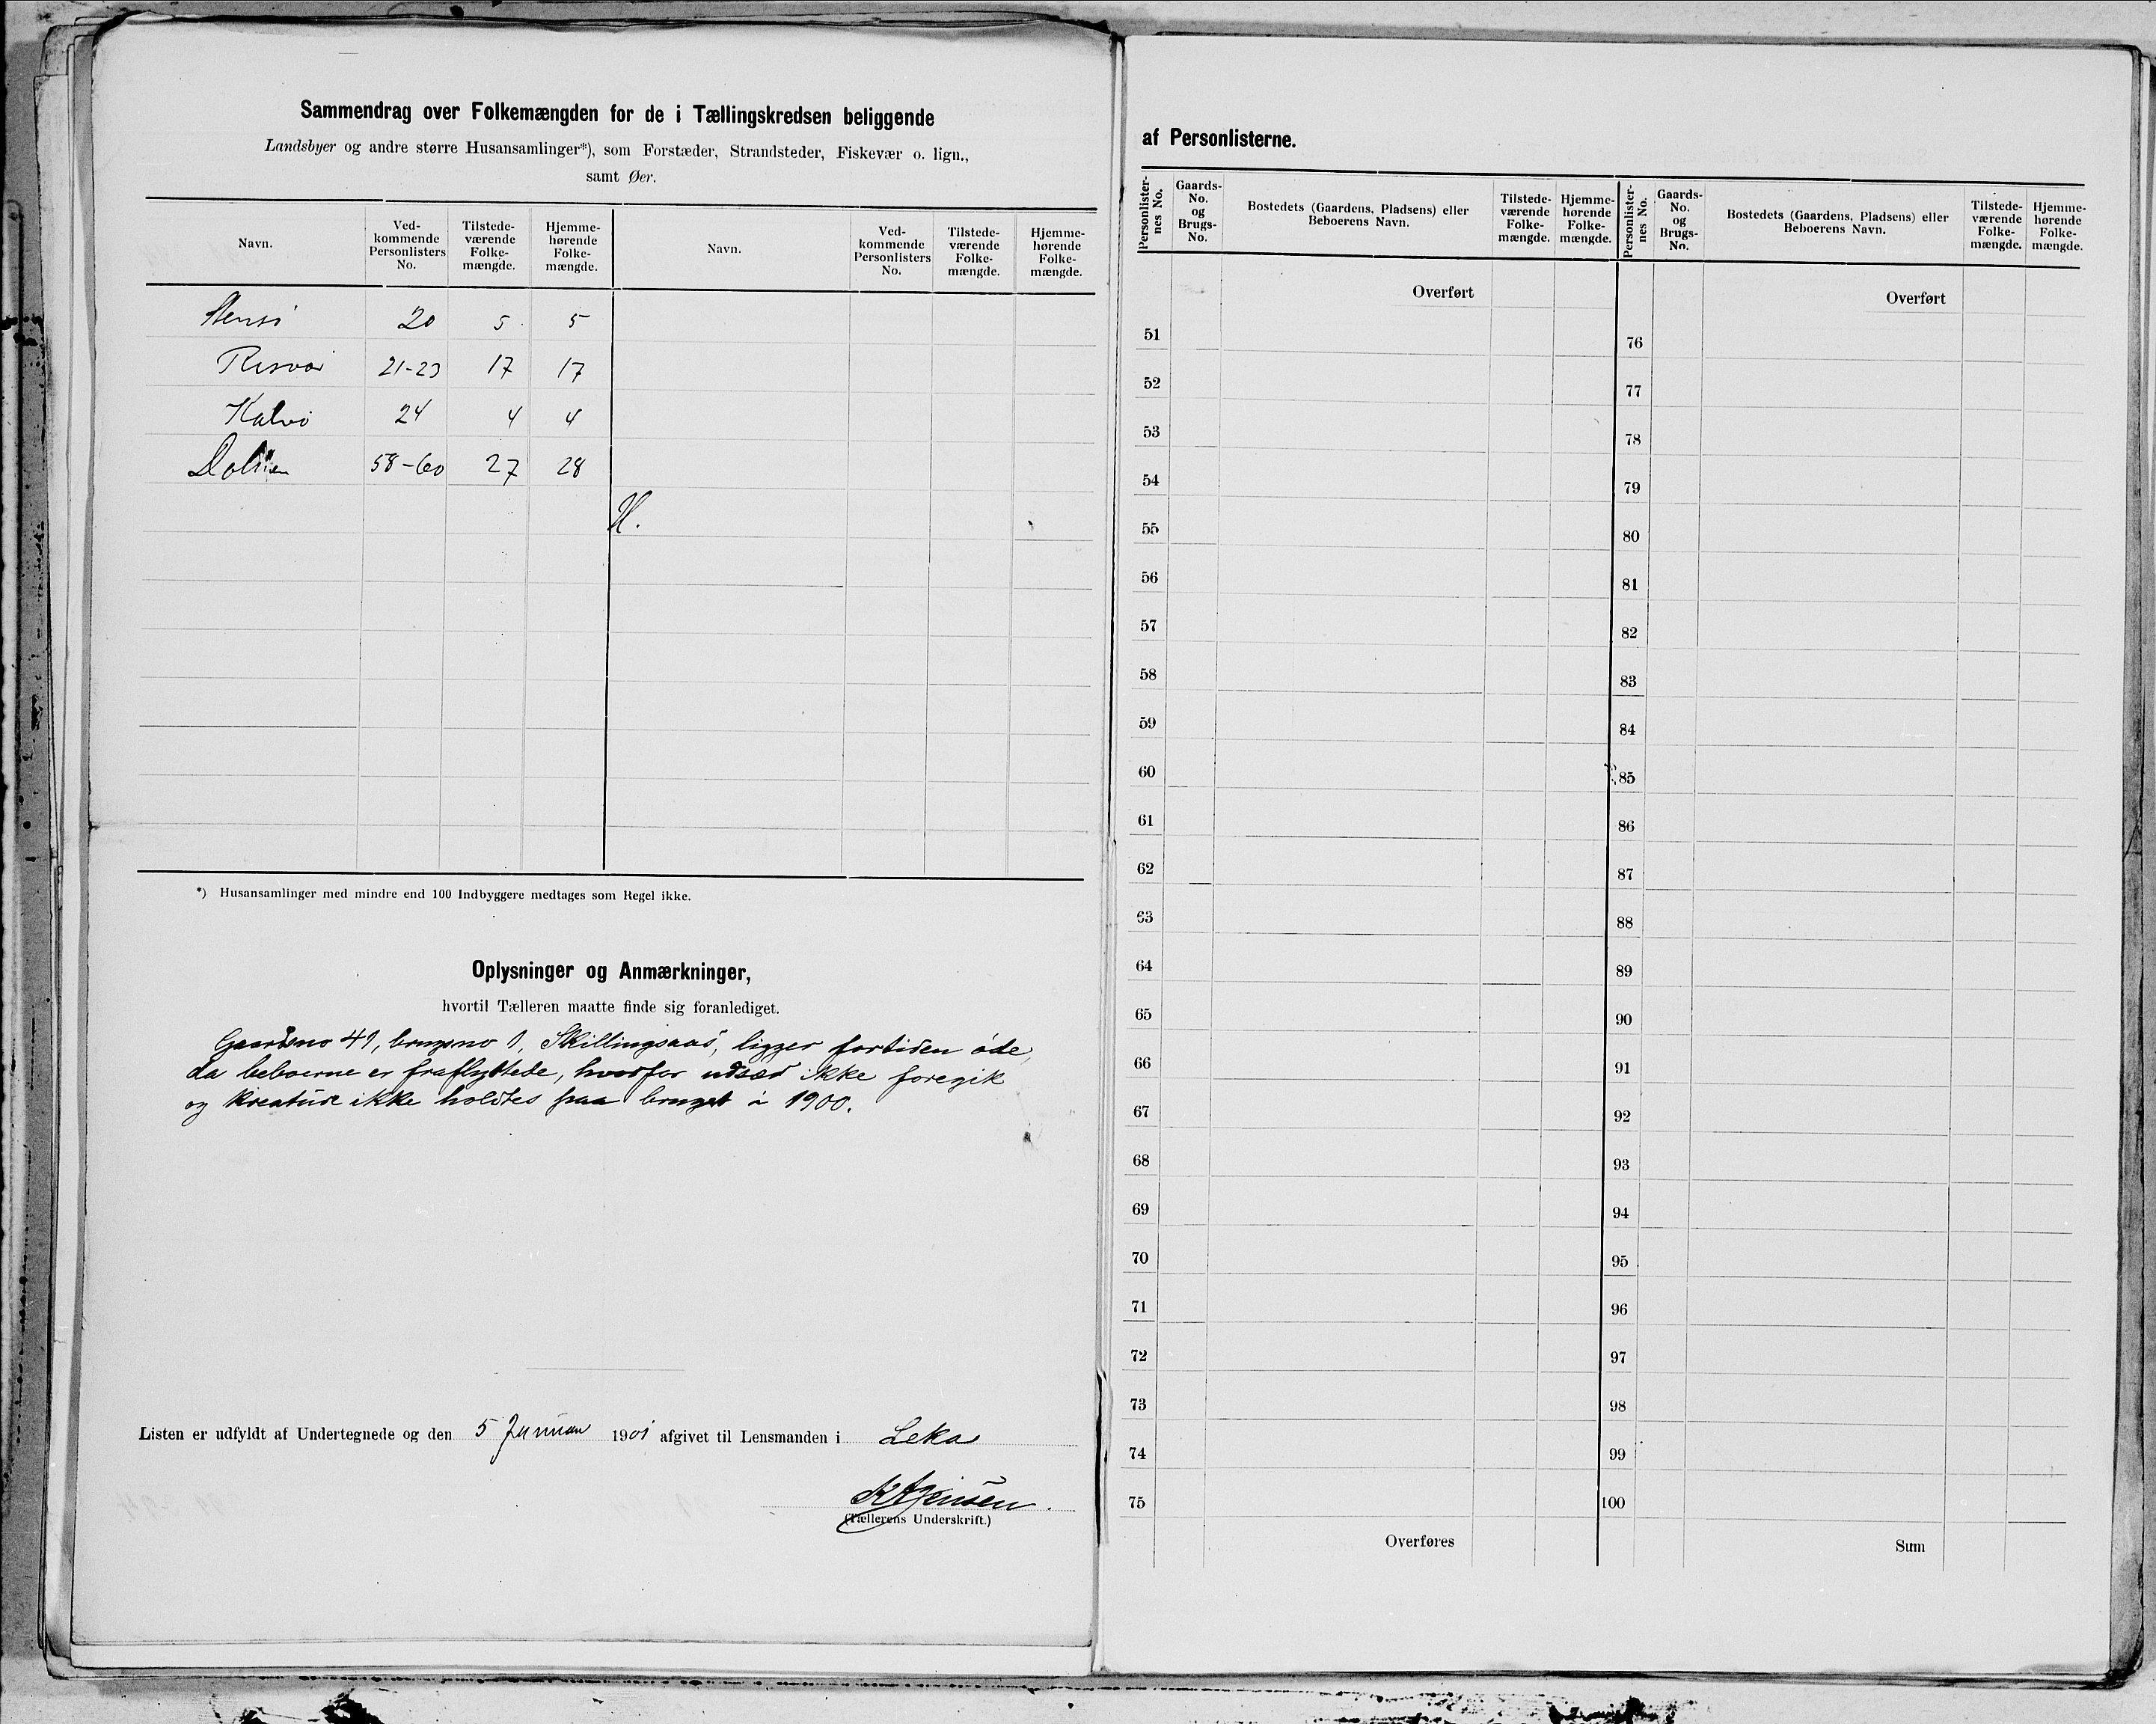 Sammendrag over Folkemængden for de i Tællingskredsen beliggende
Landsbyer og andre større Husansamlinger*), som Forstæder, Strandsteder, Fiskevær o. lign.,
samt Øer.
Navn. Ved-kommende Personlisters No. Tilstede-værende Folke-mængde. Hjemme-hørende Folke-mængde. Navn. Ved-kommende Personlisters No. Tilstede-værende Folke-mængde. Hjemme-hørende Folke-mængde.
20 5 5
Risvær 21-23 17 17
Kalvø 24 4 4
58-60 27 28
H.
*) Husansamlinger med mindre end 100 Indbyggere medtages som Regel ikke.
Oplysninger og Anmærkninger,
hvortil Tælleren maatte finde sig foranlediget.
Gaardsno 41, brugsno 1, Skillingsaas, ligger fortiden øde,
da beboerne er fraflyttede, hvorfor udsæd ikke foregik
og kreature ikke holdtes paa bruget i 1900.
Listen er udfyldt af Undertegnede og den 5 Januar 1901 afgivet til Lensmanden i Leka
Jensen.
(Tællerens Underskrift.)
af Personlisterne.
Personlister-nes No. Gaards-No. og Brugs-No. Bostedets (Gaardens, Pladsens) eller Beboerens Navn. Tilstede-værende Folke-mængde. Hjemme-hørende Folke-mængde. Personlister-nes No. Gaards-No. og Brugs-No. Bostedets (Gaardens, Pladsens) eller Beboerens Navn. Tilstede-værende Folke-mængde. Hjemme-hørende Folke-mængde.
Overført Overført
51 76
52 77
53 78
54 79
55 80
56 81
57 82
58 83
59 84
60 85
61 86
62 87
63 88
64 89
65 90
66 91
67 92
68 93
69 94
70 95
71 96
72 97
73 98
74 99
75 100
Overføres Sum